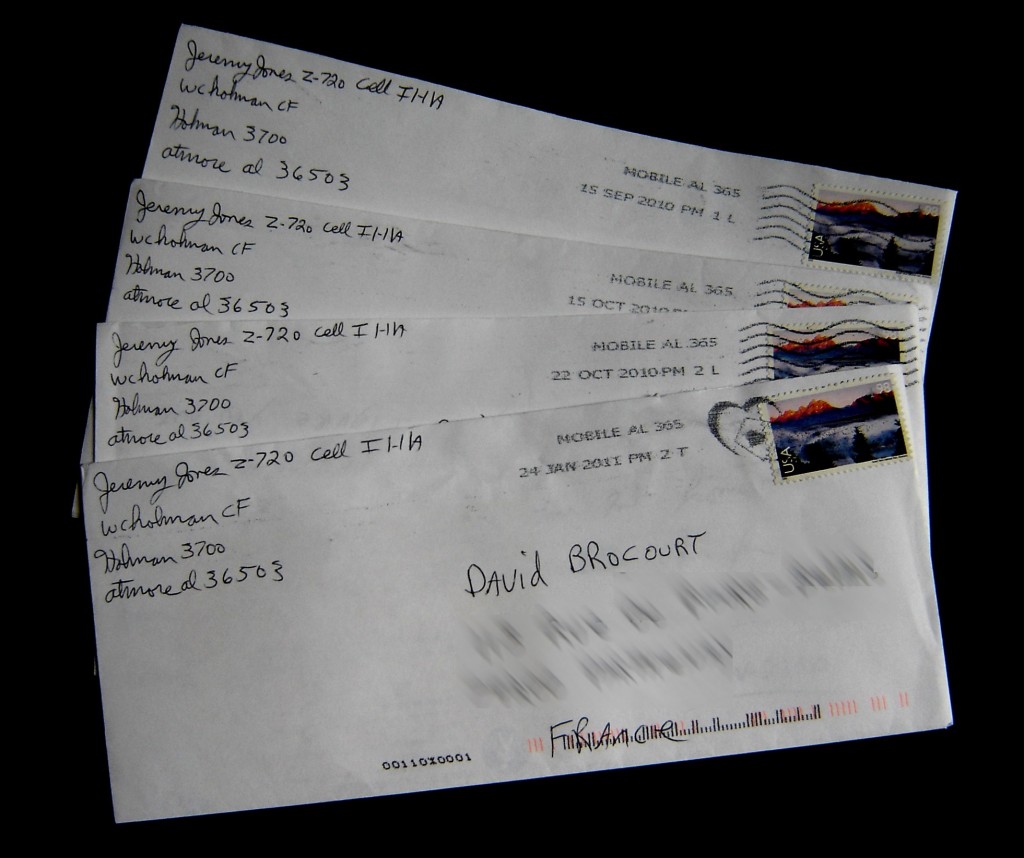 Jeremy Jones Z-720 Cell I1-1A
WC holman CF
Holman 3700
atmore al 36503
MOBILE AL 365
15 SEP 2010 PM 1 L
USA
Jeremy Jones Z-720 Cell I1-1A
WC holman CF
Holman 3700
atmore al 36503
MOBILE AL 365
15 OCT 2010 PM
Jeremy Jones Z-720 Cell I1-1A
WC holman CF
Holman 3700
atmore al 36503
MOBILE AL 365
22 OCT 2010 PM 2 L
Jeremy Jones Z-720 Cell I1-1A
WC holman CF
Holman 3700
atmore al 36503
MOBILE AL 365
24 JAN 2011 PM 2 T
USA
98
DAViD BROCOURT
FRANCE
00110X0001